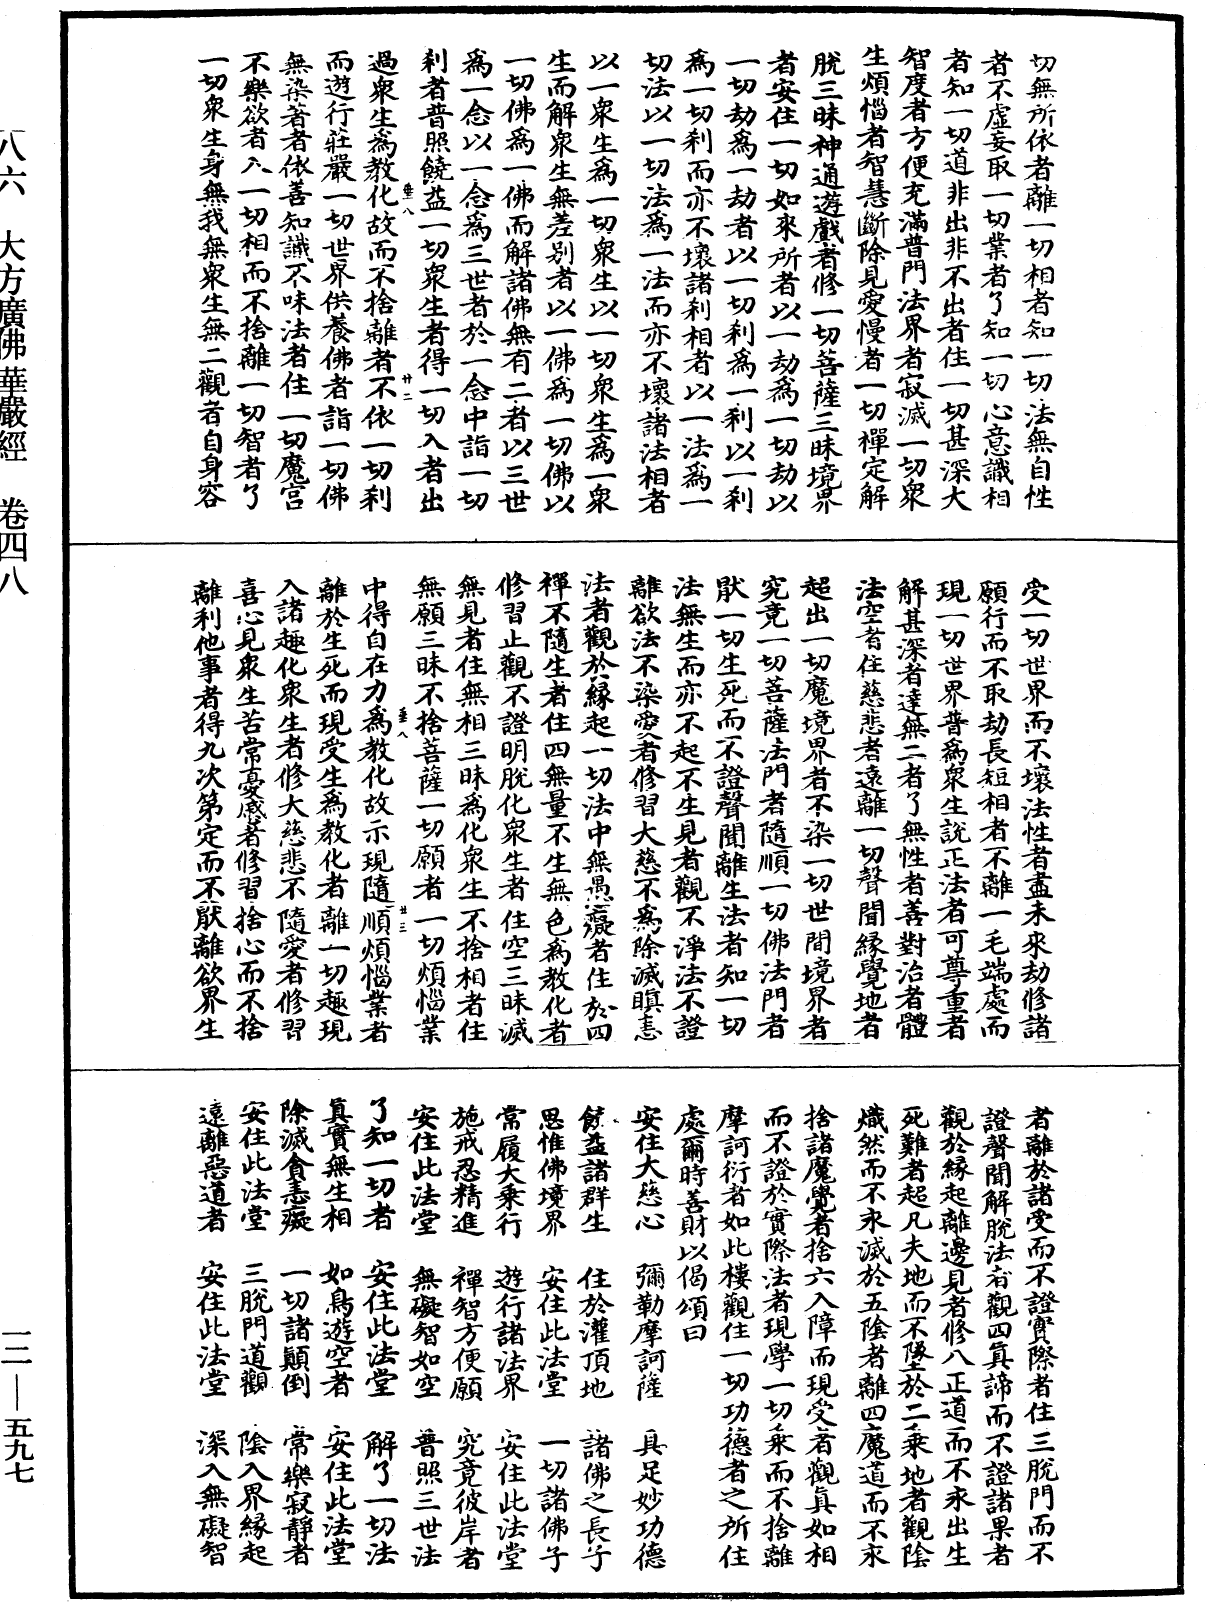 切無所依者離一切相者知一切法無自性
者不虛妄取一切業者了知一切心意識相
者知一切道非出非不出者住一切甚深大
智度者方便充滿普門法界者寂滅一切衆
生煩惱者智慧斷除見愛慢者一切禪定解
脫三昧神通遊戲者修一切菩薩三昧境界
者安住一切如來所者以一劫爲一切劫以
一切劫爲一劫者以一切刹爲一刹以一刹
爲一切刹而亦不壞諸刹相者以一法爲一
切法以一切法爲一法而亦不壞諸法相者
以一衆生爲一切衆生以一切衆生爲一衆
生而解衆生無差別者以一佛爲一切佛以
一切佛爲一佛而解諸佛無有二者以三世
爲一念以一念爲三世者於一念中詣一切
刹者普照饒益一切衆生者得一切入者出
過衆生爲教化故而不捨離者不依一切刹
而遊行莊嚴一切世界供養佛者詣一切佛
無染著者依善知識不味法者住一切魔宮
不樂欲者入一切相而不捨離一切智者了
一切衆生身無我無衆生無二觀者自身容
受一切世界而不壞法性者盡未來劫修諸
願行而不取劫長短相者不離一毛端處而
現一切世界普爲衆生說正法者可尊重者
解甚深者達無二者了無性者善對治者體
法空者住慈悲者遠離一切聲聞緣覺地者
超出一切魔境界者不染一切世間境界者
究竟一切菩薩法門者隨順一切佛法門者
猒一切生死而不證聲聞離生法者知一切
法無生而亦不起不生見者觀不淨法不證
離欲法不染愛者修習大慈不爲除滅瞋恚
法者觀於緣起一切法中無愚癡者住於四
禪不隨生者住四無量不生無色爲教化者
修習止觀不證明脫化衆生者住空三昧滅
無見者住無相三昧爲化衆生不捨相者住
無願三昧不捨菩薩一切願者一切煩惱業
中得自在力爲教化故示現隨順煩惱業者
離於生死而現受生爲教化者離一切趣現
入諸趣化衆生者修大慈悲不隨愛者修習
喜心見衆生苦常憂慼者修習捨心而不捨
離利他事者得九次第定而不猒離欲界生
者離於諸受而不證實際者住三脫門而不
證聲聞解脫法者觀四眞諦而不證諸果者
觀於緣起離邊見者修八正道而不永出生
死難者超凡夫地而不墜於二乘地者觀陰
熾然而不永滅於五陰者離四魔道而不永
捨諸魔覺者捨六入障而現受者觀眞如相
而不證於實際法者現學一切乘而不捨離
摩訶衍者如此樓觀住一切功德者之所住
處爾時善財以偈頌曰
安住大慈心　彌勒摩訶薩　具足妙功德
饒益諸群生　住於灌頂地　諸佛之長子
思惟佛境界　安住此法堂　一切諸佛子
常履大乘行　遊行諸法界　安住此法堂
施戒忍精進　禪智方便願　究竟彼岸者
安住此法堂　無礙智如空　普照三世法
了知一切者　安住此法堂　解了一切法
眞實無生相　如鳥遊空者　安住此法堂
除滅貪恚癡　一切諸顚倒　常樂寂靜者
安住此法堂　三脫門道觀　陰入界緣起
遠離惡道者　安住此法堂　深入無礙智
垂八
廿二
垂八
廿三
八六　大方廣佛華嚴經　卷四八
一二—五九七